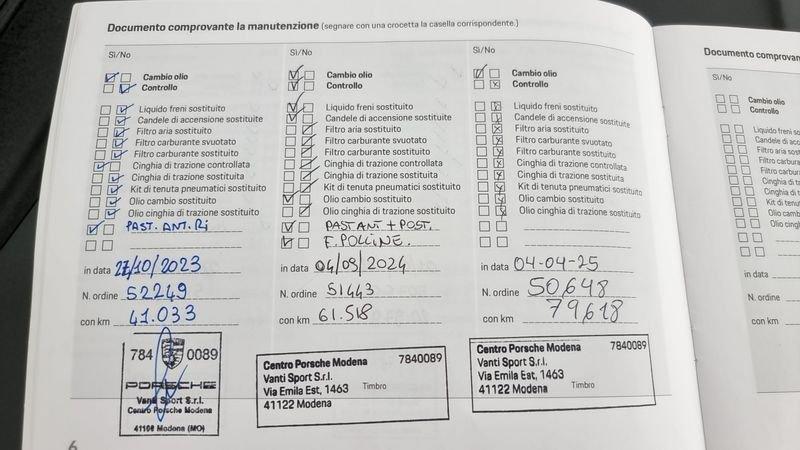 Documento comprovante la manutenzione (segnare con una crocetta la casella corrispondente.)
Sì/No
Cambio olio
Controllo
Liquido freni sostituito
Candele di accensione sostituite
Filtro aria sostituito
Filtro carburante svuotato
Filtro carburante sostituito
Cinghia di trazione controllata
Cinghia di trazione sostituita
Kit di tenuta pneumatici sostituito
Olio cambio sostituito
Olio cinghia di trazione sostituito
PAST. ANT. Ri
in data 27/10/2023
N. ordine 52249
con km 41.033
784 0089
PORSCHE
Vanti Sport S.r.l.
Centro Porsche Modena
41100 Modena (MO)
6
Sì/No
Cambio olio
Controllo
Liquido freni sostituito
Candele di accensione sostituite
Filtro aria sostituito
Filtro carburante svuotato
Filtro carburante sostituito
Cinghia di trazione controllata
Cinghia di trazione sostituita
Kit di tenuta pneumatici sostituito
Olio cambio sostituito
Olio cinghia di trazione sostituito
PAST ANT + POST.
F. POLLINE.
in data 04/09/2024
N. ordine 51443
con km 61.518
Centro Porsche Modena 7840089
Vanti Sport S.r.l.
Via Emilia Est, 1463 Timbro
41122 Modena
Sì/No
Cambio olio
Controllo
Liquido freni sostituito
Candele di accensione sostituite
Filtro aria sostituito
Filtro carburante svuotato
Filtro carburante sostituito
Cinghia di trazione controllata
Cinghia di trazione sostituita
Kit di tenuta pneumatici sostituito
Olio cambio sostituito
Olio cinghia di trazione sostituito
in data 04-04-25
N. ordine 50648
con km 79618
Centro Porsche Modena 7840089
Vanti Sport S.r.l.
Via Emilia Est, 1463 Timbro
41122 Modena
Documento comprovan
Sì/No
Cambio olio
Controllo
Liquido freni sos
Candele di acc
Filtro aria sost
Filtro carbura
Filtro carbur
Cinghia di tr
Cinghia di t
Kit di tenut
Olio camb
Olio cingh
in data
N. ordine
con km